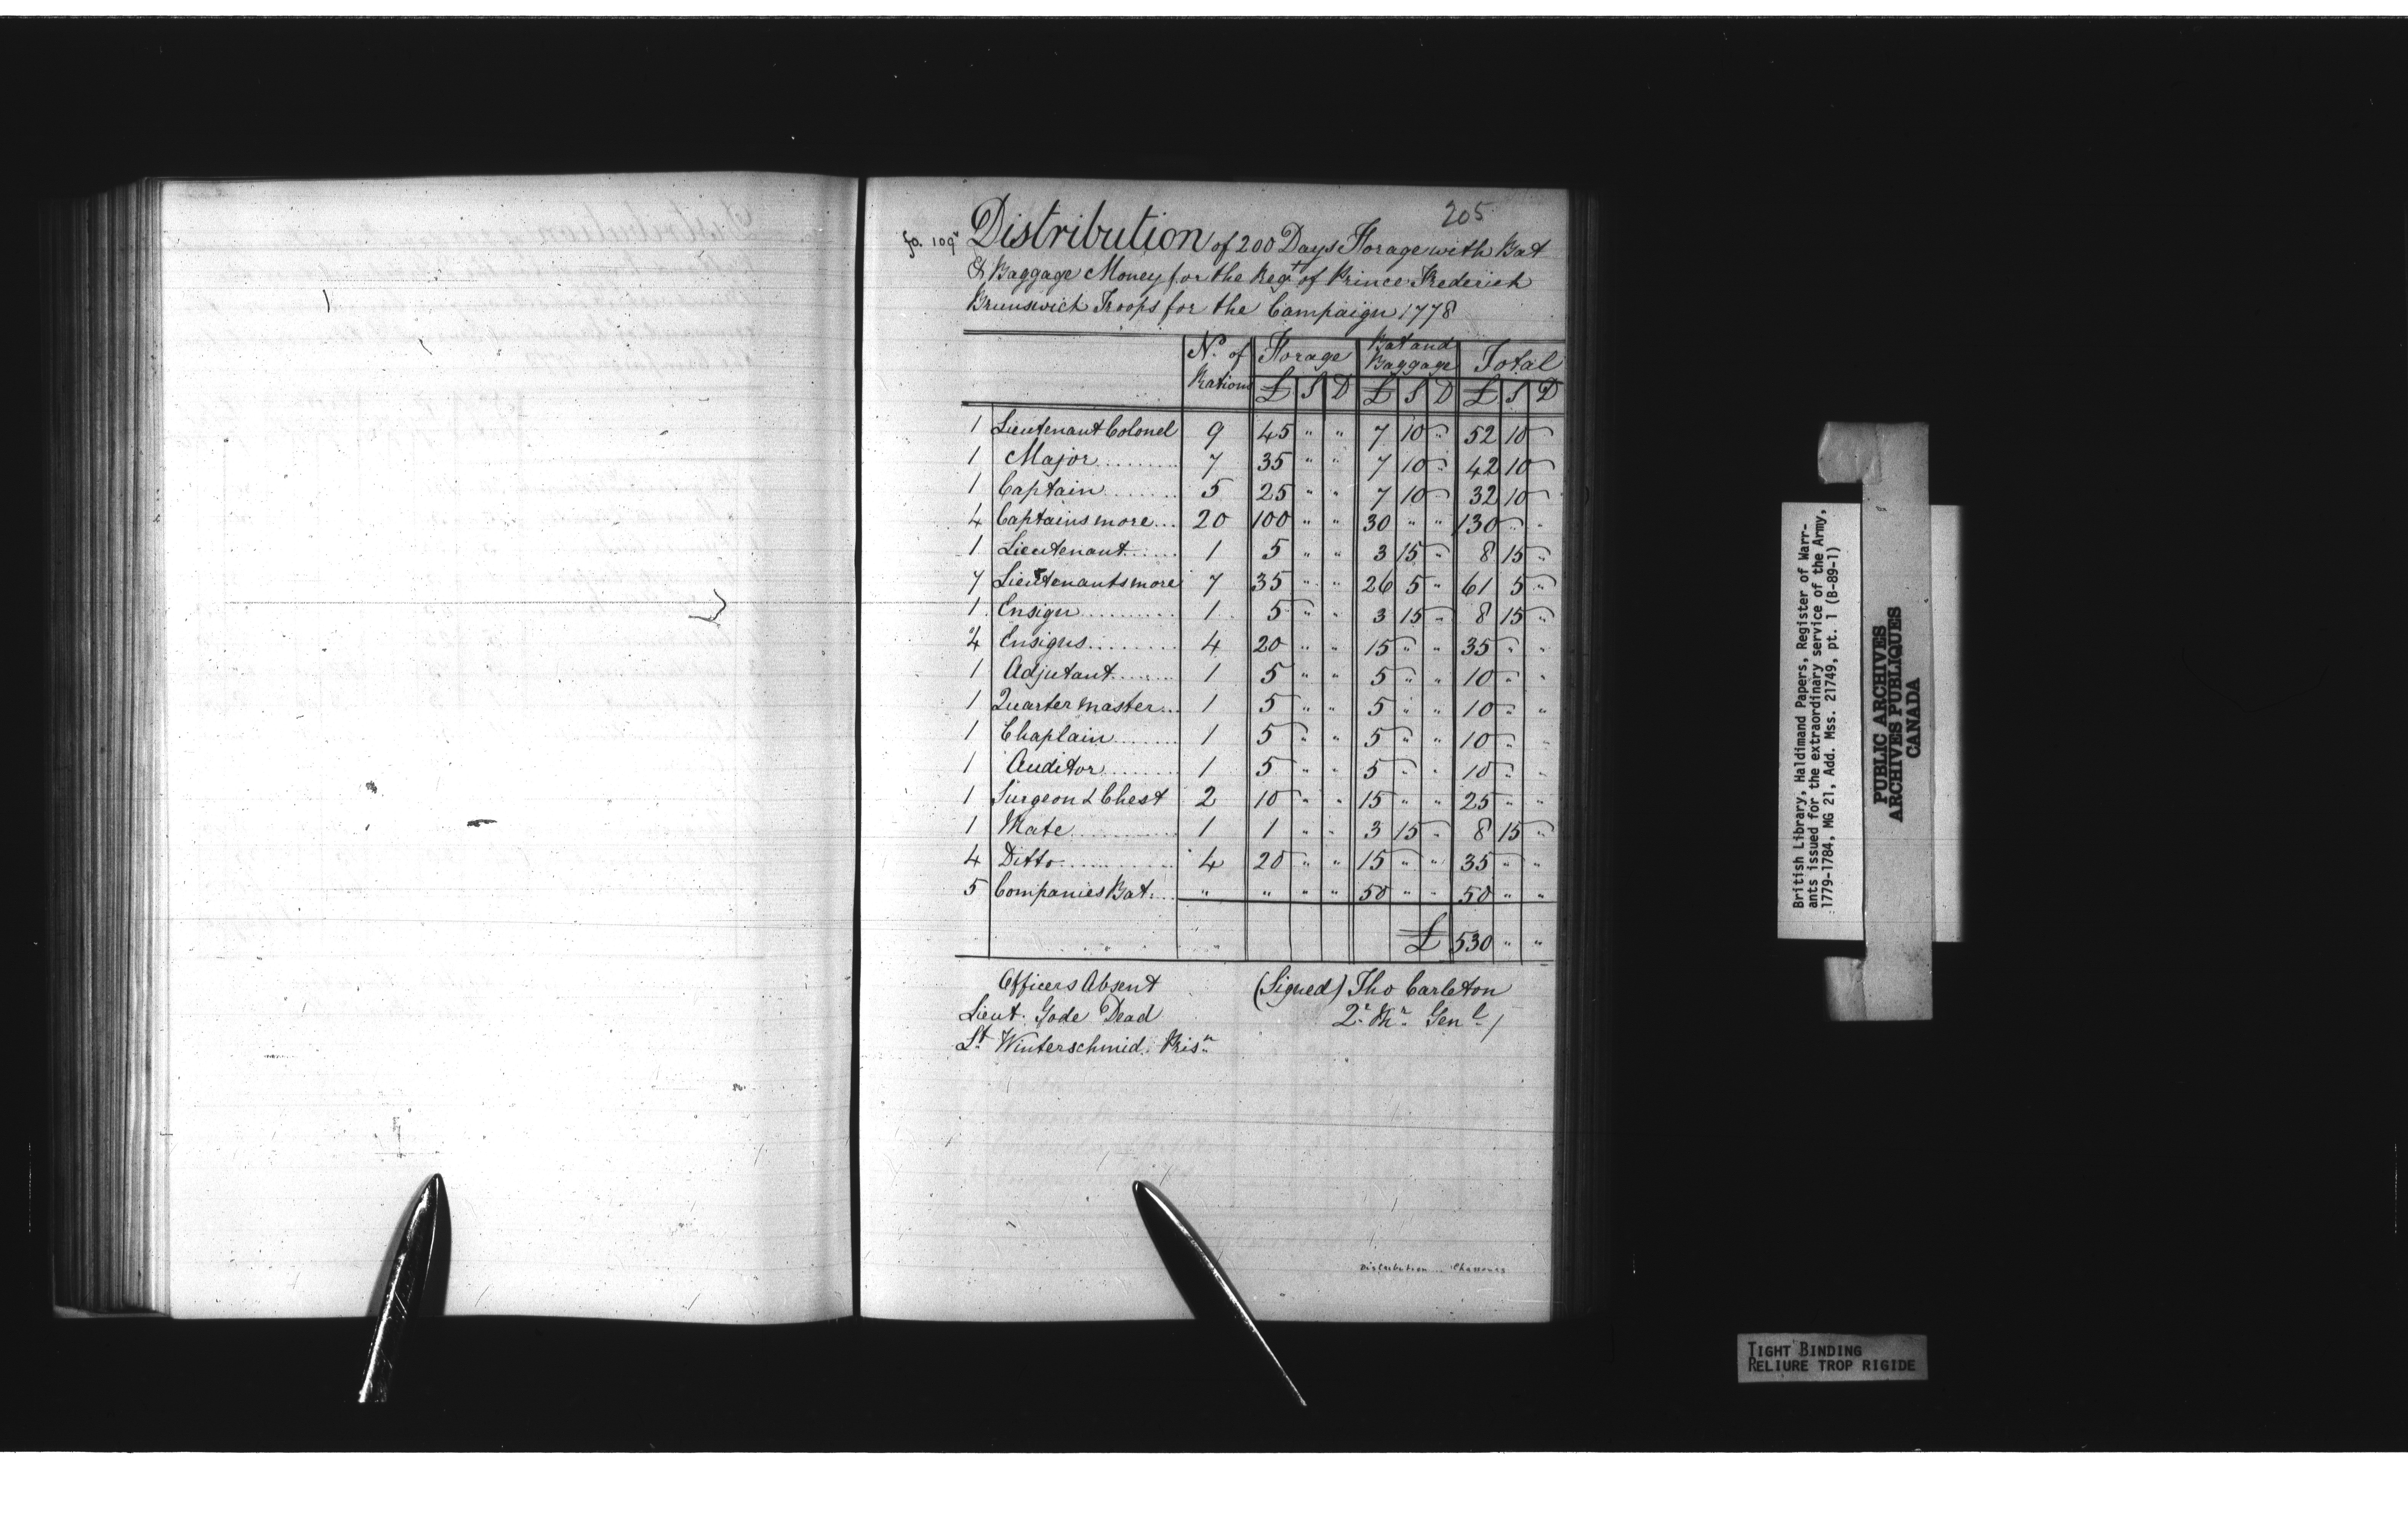 205
fo. 109v Distribution of 200 Days Forage with Bat
& Baggage Money for the Regt of Prince Frederick
Brunswick Troops for the Campaign 1778
No. of Rations | Forage | Bat and Baggage | Total
£ S D | £ S D | £ S D
1 Lieutenant Colonel 9 45 " " 7 10 " 52 10
1 Major ......... 7 35 " " 7 10 " 42 10
1 Captain ....... 5 25 " " 7 10 32 10
4 Captains more... 20 100 " " 30 " " 130 " "
1 Lieutenant...... 1 5 " " 3 15 " 8 15 "
7 Lieutenants more 7 35 " " 26 5 " 61 5 "
1 Ensign .......... 1 5 " " 3 15 " 8 15 "
4 Ensigns ......... 4 20 " " 15 " " 35 " "
1 Adjutant....... 1 5 " " 5 " " 10 " "
1 Quarter Master... 1 5 " " 5 " " 10 " "
1 Chaplain ....... 1 5 " " 5 " " 10 " "
1 Auditor ........ 1 5 " " 5 " " 10 " "
1 Surgeon & Chest 2 10 " " 15 " " 25 " "
1 Mate ............ 1 1 " " 3 15 " 8 15 "
4 Ditto ............ 4 20 " " 15 " " 35 " "
5 Companies Bat.... " " " " 50 " " 50 " "
£ 530 " "
Officers Absent
Lieut. Gode Dead
Lt. Winterschmid. Prisn
(Signed) Tho Carleton
2r. Mr. Genl /
Distribution ... Chasseurs
British Library, Haldimand Papers, Register of Warr-
ants issued for the extraordinary service of the Army,
1779-1784, MG 21, Add. Mss. 21749, pt. 1 (B-89-1)
PUBLIC ARCHIVES
ARCHIVES PUBLIQUES
CANADA
TIGHT BINDING
RELIURE TROP RIGIDE